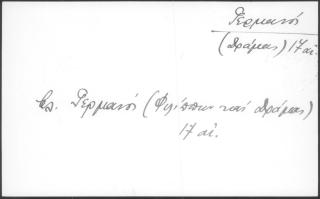 Γερμανός
(Δράμας) 17 αἰ.
Βλ. Γερμανός (Φιλίππων καί Δράμας)
17 αἰ.